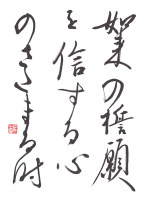 如来の誓願
を信ずる心
のさだまる時